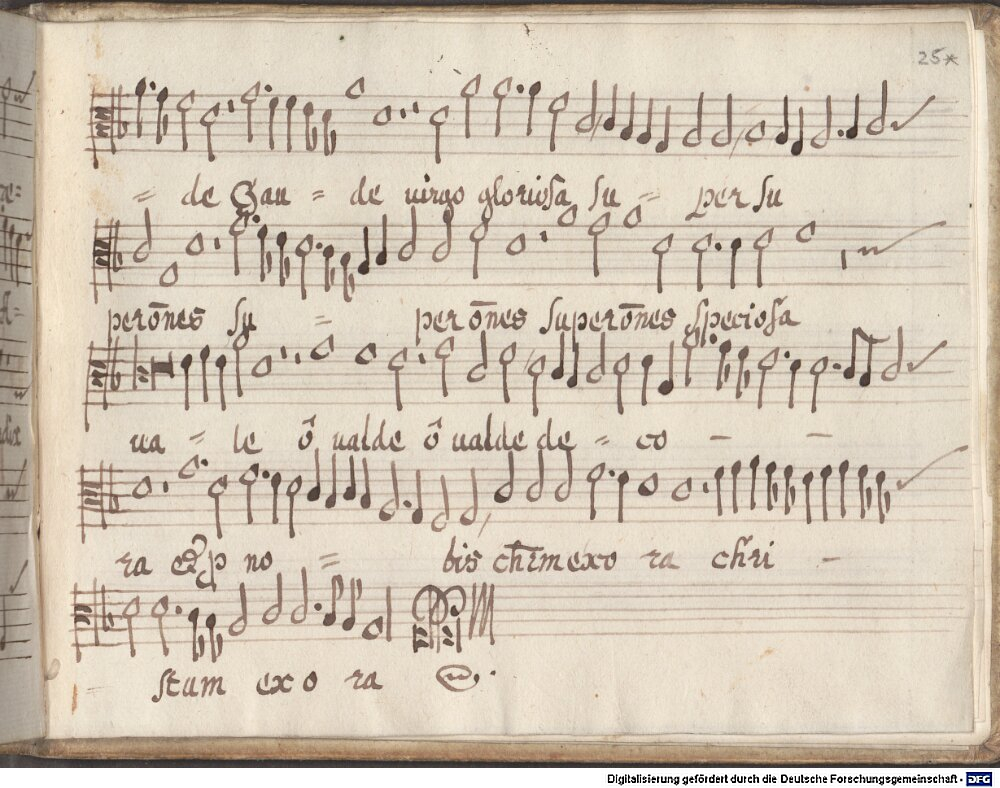 25*
= de Gau = de virgo gloriosa su = per su
perōnes su = per ōnes superōnes speciosa
ua = le ô ualde ô ualde de = co – –
ra no = bis chrm̄ exo ra chri –
stum exo ra
Digitalisierung gefördert durch die Deutsche Forschungsgemeinschaft - DFG